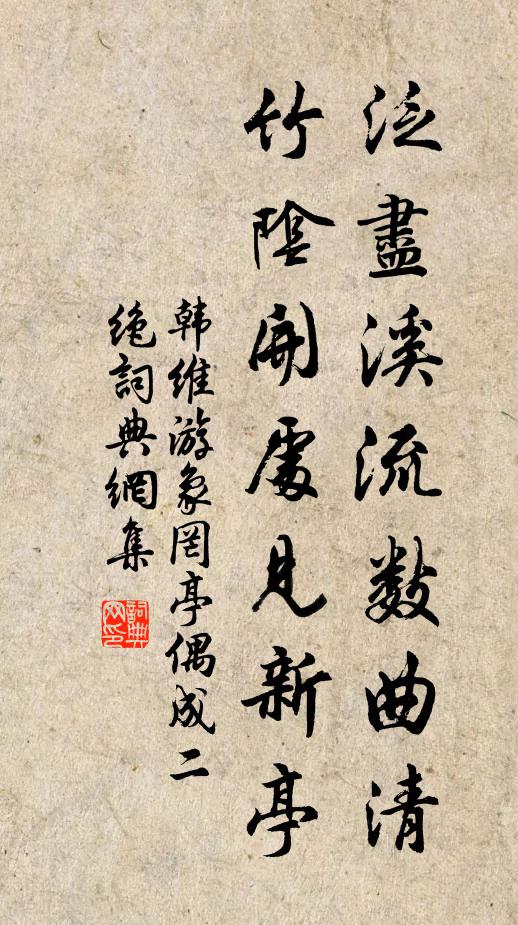 泛盡溪流數曲清
竹陰開處見新亭
韩維游象罔亭偶成二
絶詞典網集
詞典
网印